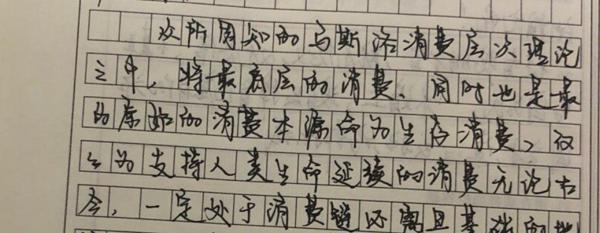 众所周知的马斯洛消费层次理论
之中，将最底层的消费、同时也是最
的原始的消费本源命为生存消费、仅
仅为支持人类生命延续的消费无论古
今，一定处于消费链沿离且基础的地